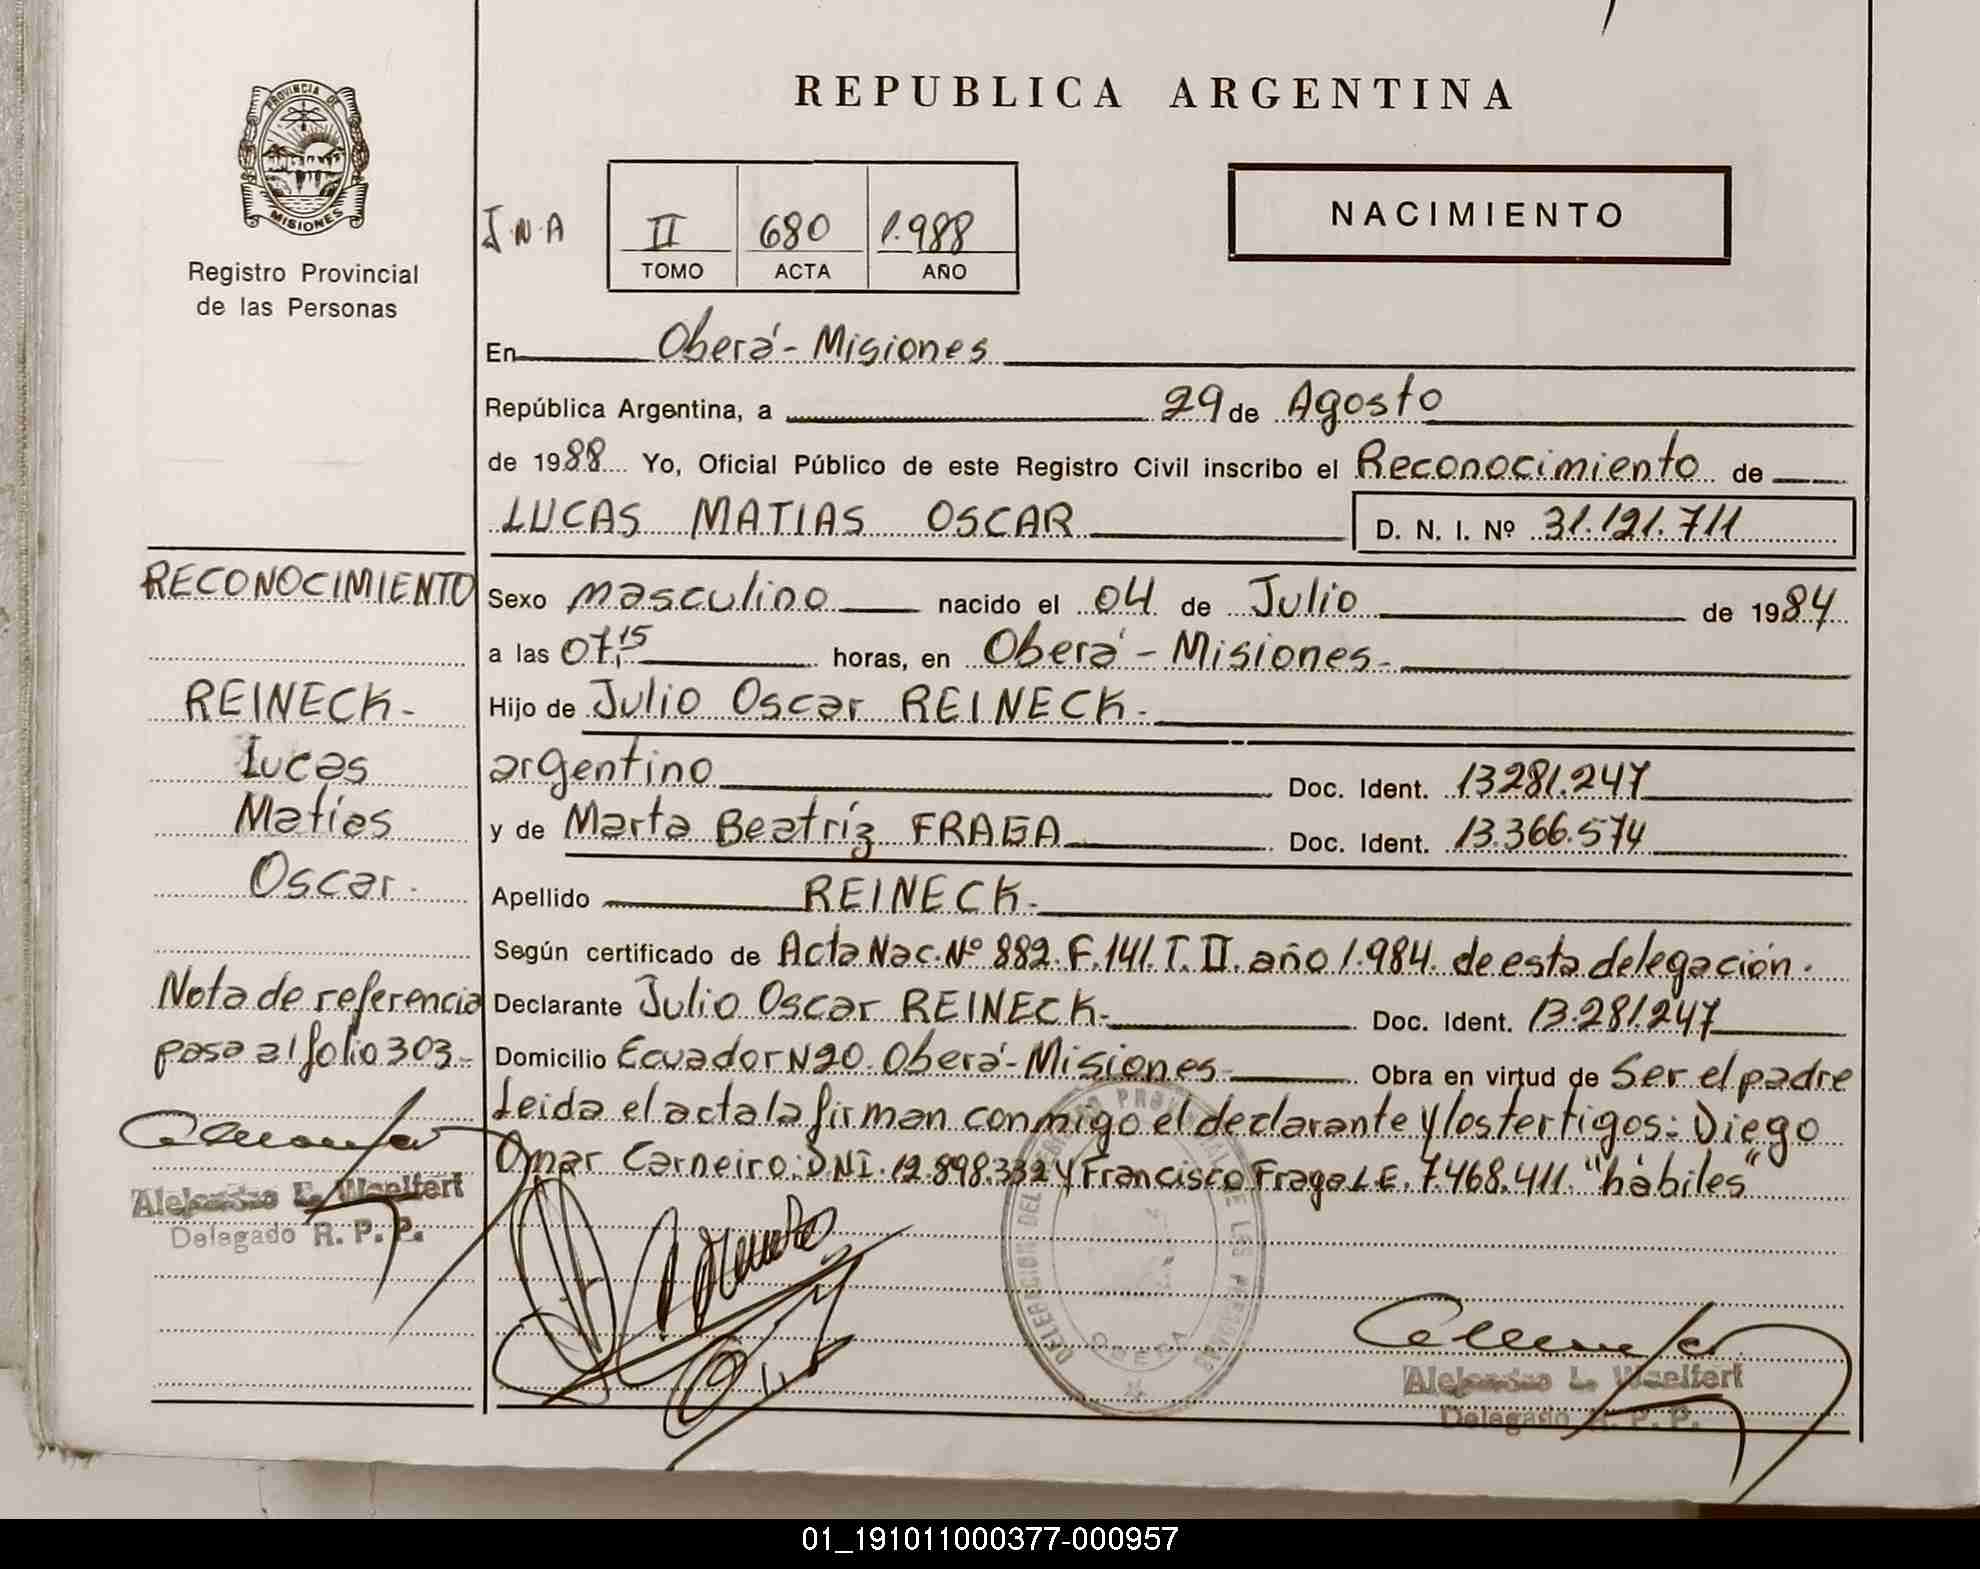 REPUBLICA ARGENTINA
PROVINCIA DE
MISIONES
Registro Provincial
de las Personas
J.N.A
II 680 1.988
TOMO ACTA AÑO
NACIMIENTO
En Oberá - Misiones
República Argentina, a 29 de Agosto
de 1988 Yo, Oficial Público de este Registro Civil inscribo el Reconocimiento de
LUCAS MATIAS OSCAR D. N. I. Nº 31.121.711
Sexo masculino nacido el 04 de Julio de 1984
a las 07,15 horas, en Oberá - Misiones-
Hijo de Julio Oscar REINECK.
argentino Doc. Ident. 13281.247
y de Marta Beatríz FRAGA Doc. Ident. 13.366.574
Apellido REINECK.
Según certificado de Acta Nac. Nº 882. F. 141. T. II. año 1.984. de esta delegación.
Declarante Julio Oscar REINECK- Doc. Ident. 13.281.247
Domicilio Ecuador N20. Oberá - Misiones- Obra en virtud de Ser el padre
Leida el acta la firman conmigo el declarante y los tertigos: Diego
Omar Carneiro: DNI. 12.898.332 y Francisco Fraga L.E. 7.468.411. "hábiles"
RECONOCIMIENTO
REINECK-
Lucas
Matías
Oscar.
Nota de referencia
pasa al folio 303.-
Alejandro L. Waelfert
Delegado R. P. P.
DELEGACION DEL REGISTRO PROVINCIAL DE LAS PERSONAS
OBERA
Alejandro L. Waelfert
Delegado R. P. P.
01_191011000377-000957